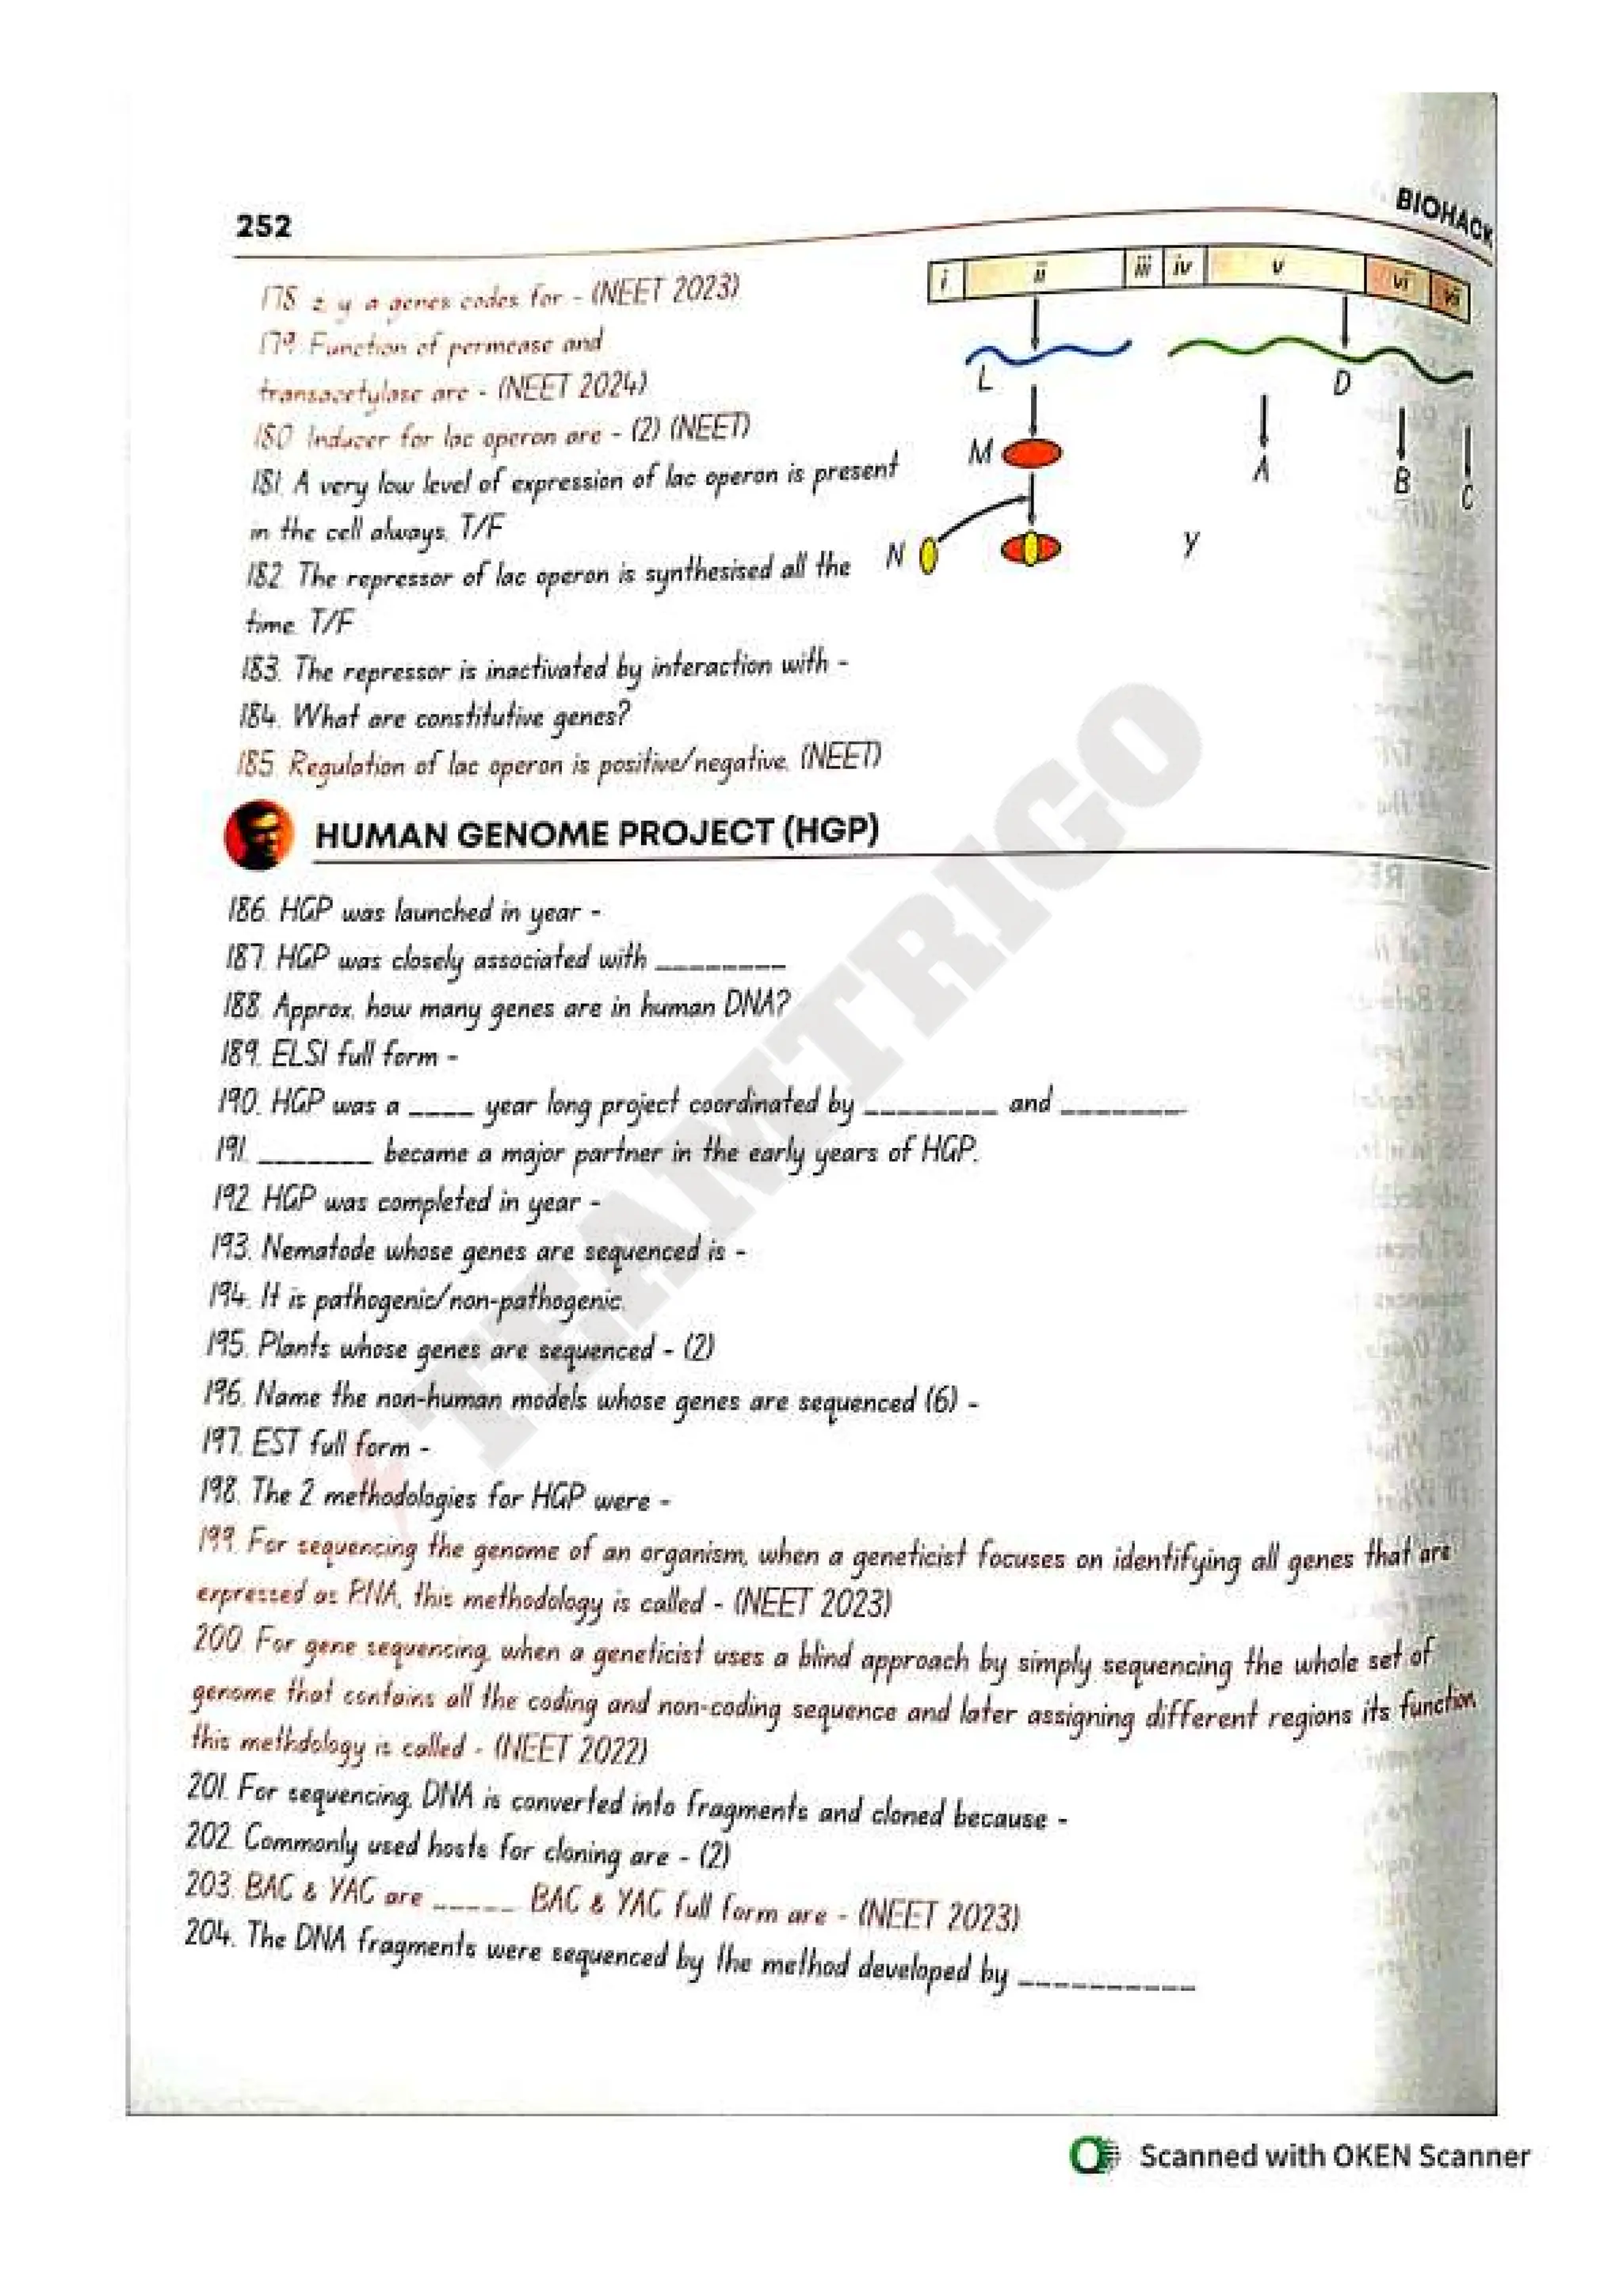 252
BIOHACK
178. z, y, a genes codes for - (NEET 2023)
179. Function of permease and
transacetylase are - (NEET 2024)
180. Inducer for lac operon are - (2) (NEET)
181. A very low level of expression of lac operon is present
in the cell always. T/F
182. The repressor of lac operon is synthesised all the
time. T/F
183. The repressor is inactivated by interaction with -
184. What are constitutive genes?
185. Regulation of lac operon is positive/negative. (NEET)
i ii iii iv v vi vii
L D
M A B C
N y
HUMAN GENOME PROJECT (HGP)
186. HGP was launched in year -
187. HGP was closely associated with ________
188. Approx. how many genes are in human DNA?
189. ELSI full form -
190. HGP was a ____ year long project coordinated by ________ and _______
191. _______ became a major partner in the early years of HGP.
192. HGP was completed in year -
193. Nematode whose genes are sequenced is -
194. It is pathogenic/non-pathogenic.
195. Plants whose genes are sequenced - (2)
196. Name the non-human models whose genes are sequenced (6) -
197. EST full form -
198. The 2 methodologies for HGP were -
199. For sequencing the genome of an organism, when a geneticist focuses on identifying all genes that are
expressed as RNA, this methodology is called - (NEET 2023)
200. For gene sequencing, when a geneticist uses a blind approach by simply sequencing the whole set of
genome that contains all the coding and non-coding sequence and later assigning different regions its function
this methdology is called - (NEET 2022)
201. For sequencing, DNA is converted into fragments and cloned because -
202. Commonly used hosts for cloning are - (2)
203. BAC & YAC are _____ BAC & YAC full form are - (NEET 2023)
204. The DNA fragments were sequenced by the method developed by __________
TEAMTRIGO
Scanned with OKEN Scanner